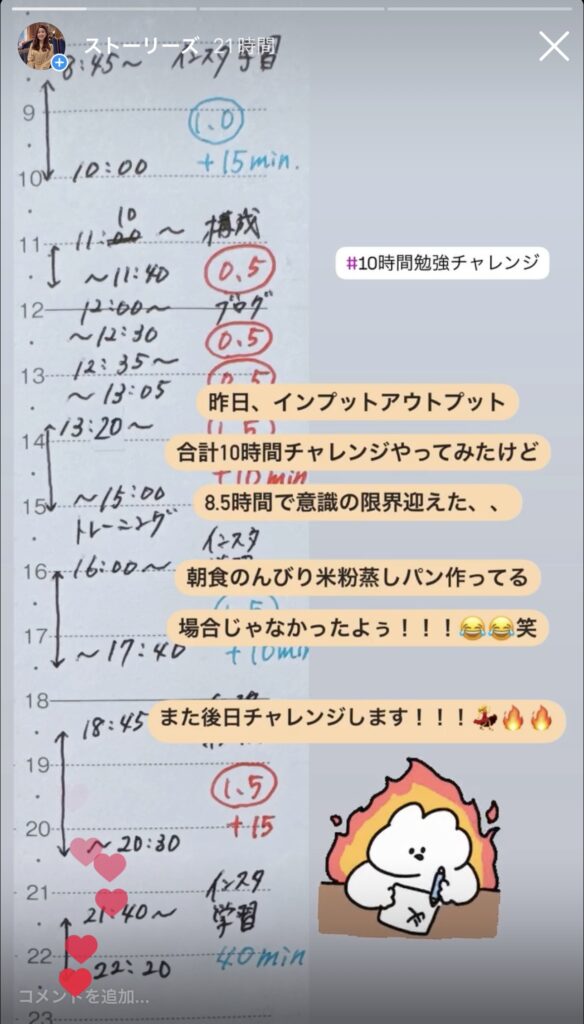 ストーリーズ 21時間
8:45～ インスタ学習
9
1.0
+15min.
10
10:00
11:00 10 ～ 構成
11
～11:40
0.5
#10時間勉強チャレンジ
12
12:00～ ブログ
～12:30
0.5
12:35～
13
～13:05
0.5
昨日、インプットアウトプット
13:20～
1.5
14
合計10時間チャレンジやってみたけど
+10min
～15:00
8.5時間で意識の限界迎えた、、
15
トレーニング
インスタ
16
16:00～
朝食のんびり米粉蒸しパン作ってる
1.5
場合じゃなかったよぅ！！！😂😂笑
17
～17:40
+10min
18
18:45
また後日チャレンジします！！！💃🔥🔥
19
1.5
+15
20
～20:30
21
インスタ
21:40～
学習
22
22:20
40min
コメントを追加...
23